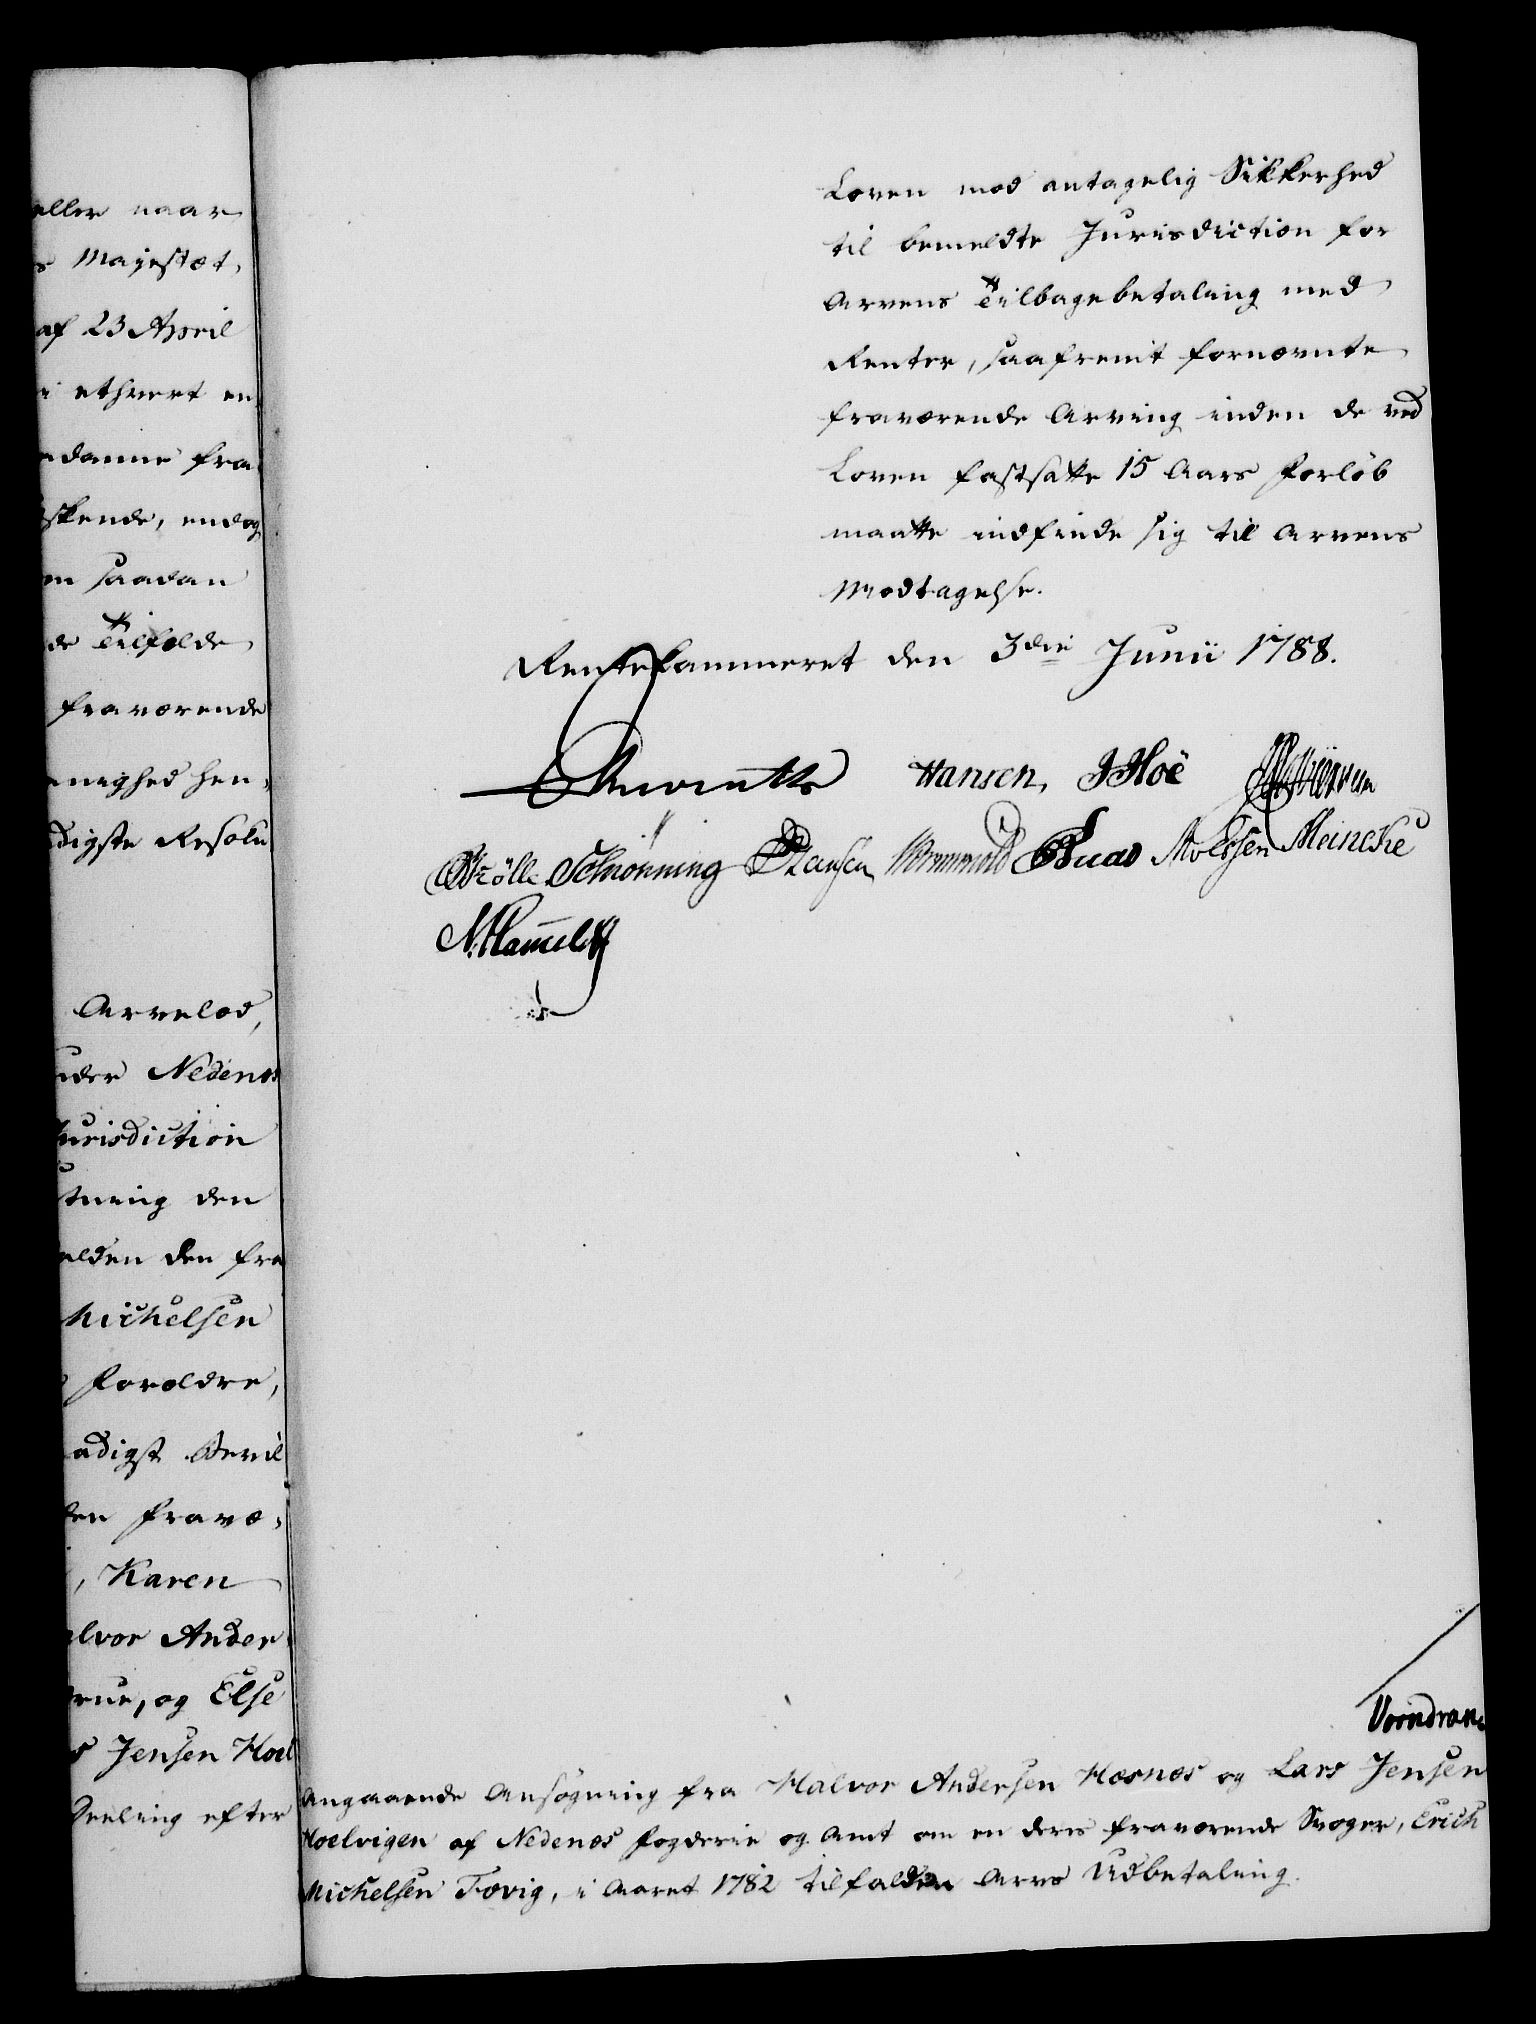 eller naar
Majestæt,
af 23 April
i ethvert en
danne fra
skende, endog
en saadan
de Tilfælde
fraværende
nighed hen,
digste Resolu
Arvelod,
der Nedenes
Jurisdiction
tning den
alden den fra
Michelsen
Forældre,
adigst Bevil
den fravæ,
, Karen
lvor Ander
rue, og Else
s Jensen Hoel
Deeling efter
Loven mod antagelig Sikkerhed
til bemeldte Jurisdiction for
Arvens Tilbagebetaling med
Renter, saafremt fornævnte
fraværende Arving inden de ved
Loven fastsatte 15 Aars Forløb
maatte indfinde sig til Arvens
Modtagelse.
Rentekammeret den 3die Junii 1788.
Hansen, JHoë
Schiönning Hansen Wormvold Buas Meincke
Vorndran.
Angaaende Ansøgning fra Halvor Andersen Hæsnes og Lars Jensen
Hoelvigen af Nedenes Fogderie og Amt om en deres fraværende Svoger, Erich
Michelsen Fævig, i Aaret 1782 tilfalden Arvs Udbetaling.